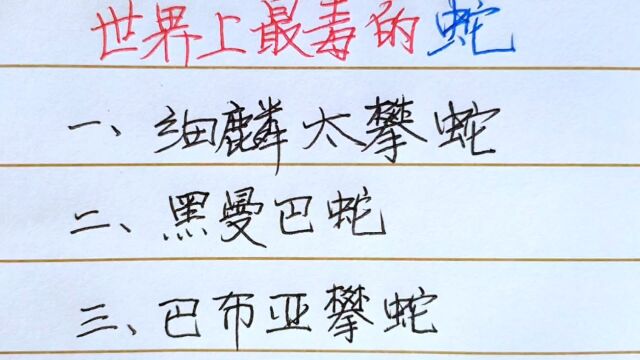 世界上最毒的蛇
一、细麟太攀蛇
二、黑曼巴蛇
三、巴布亚攀蛇